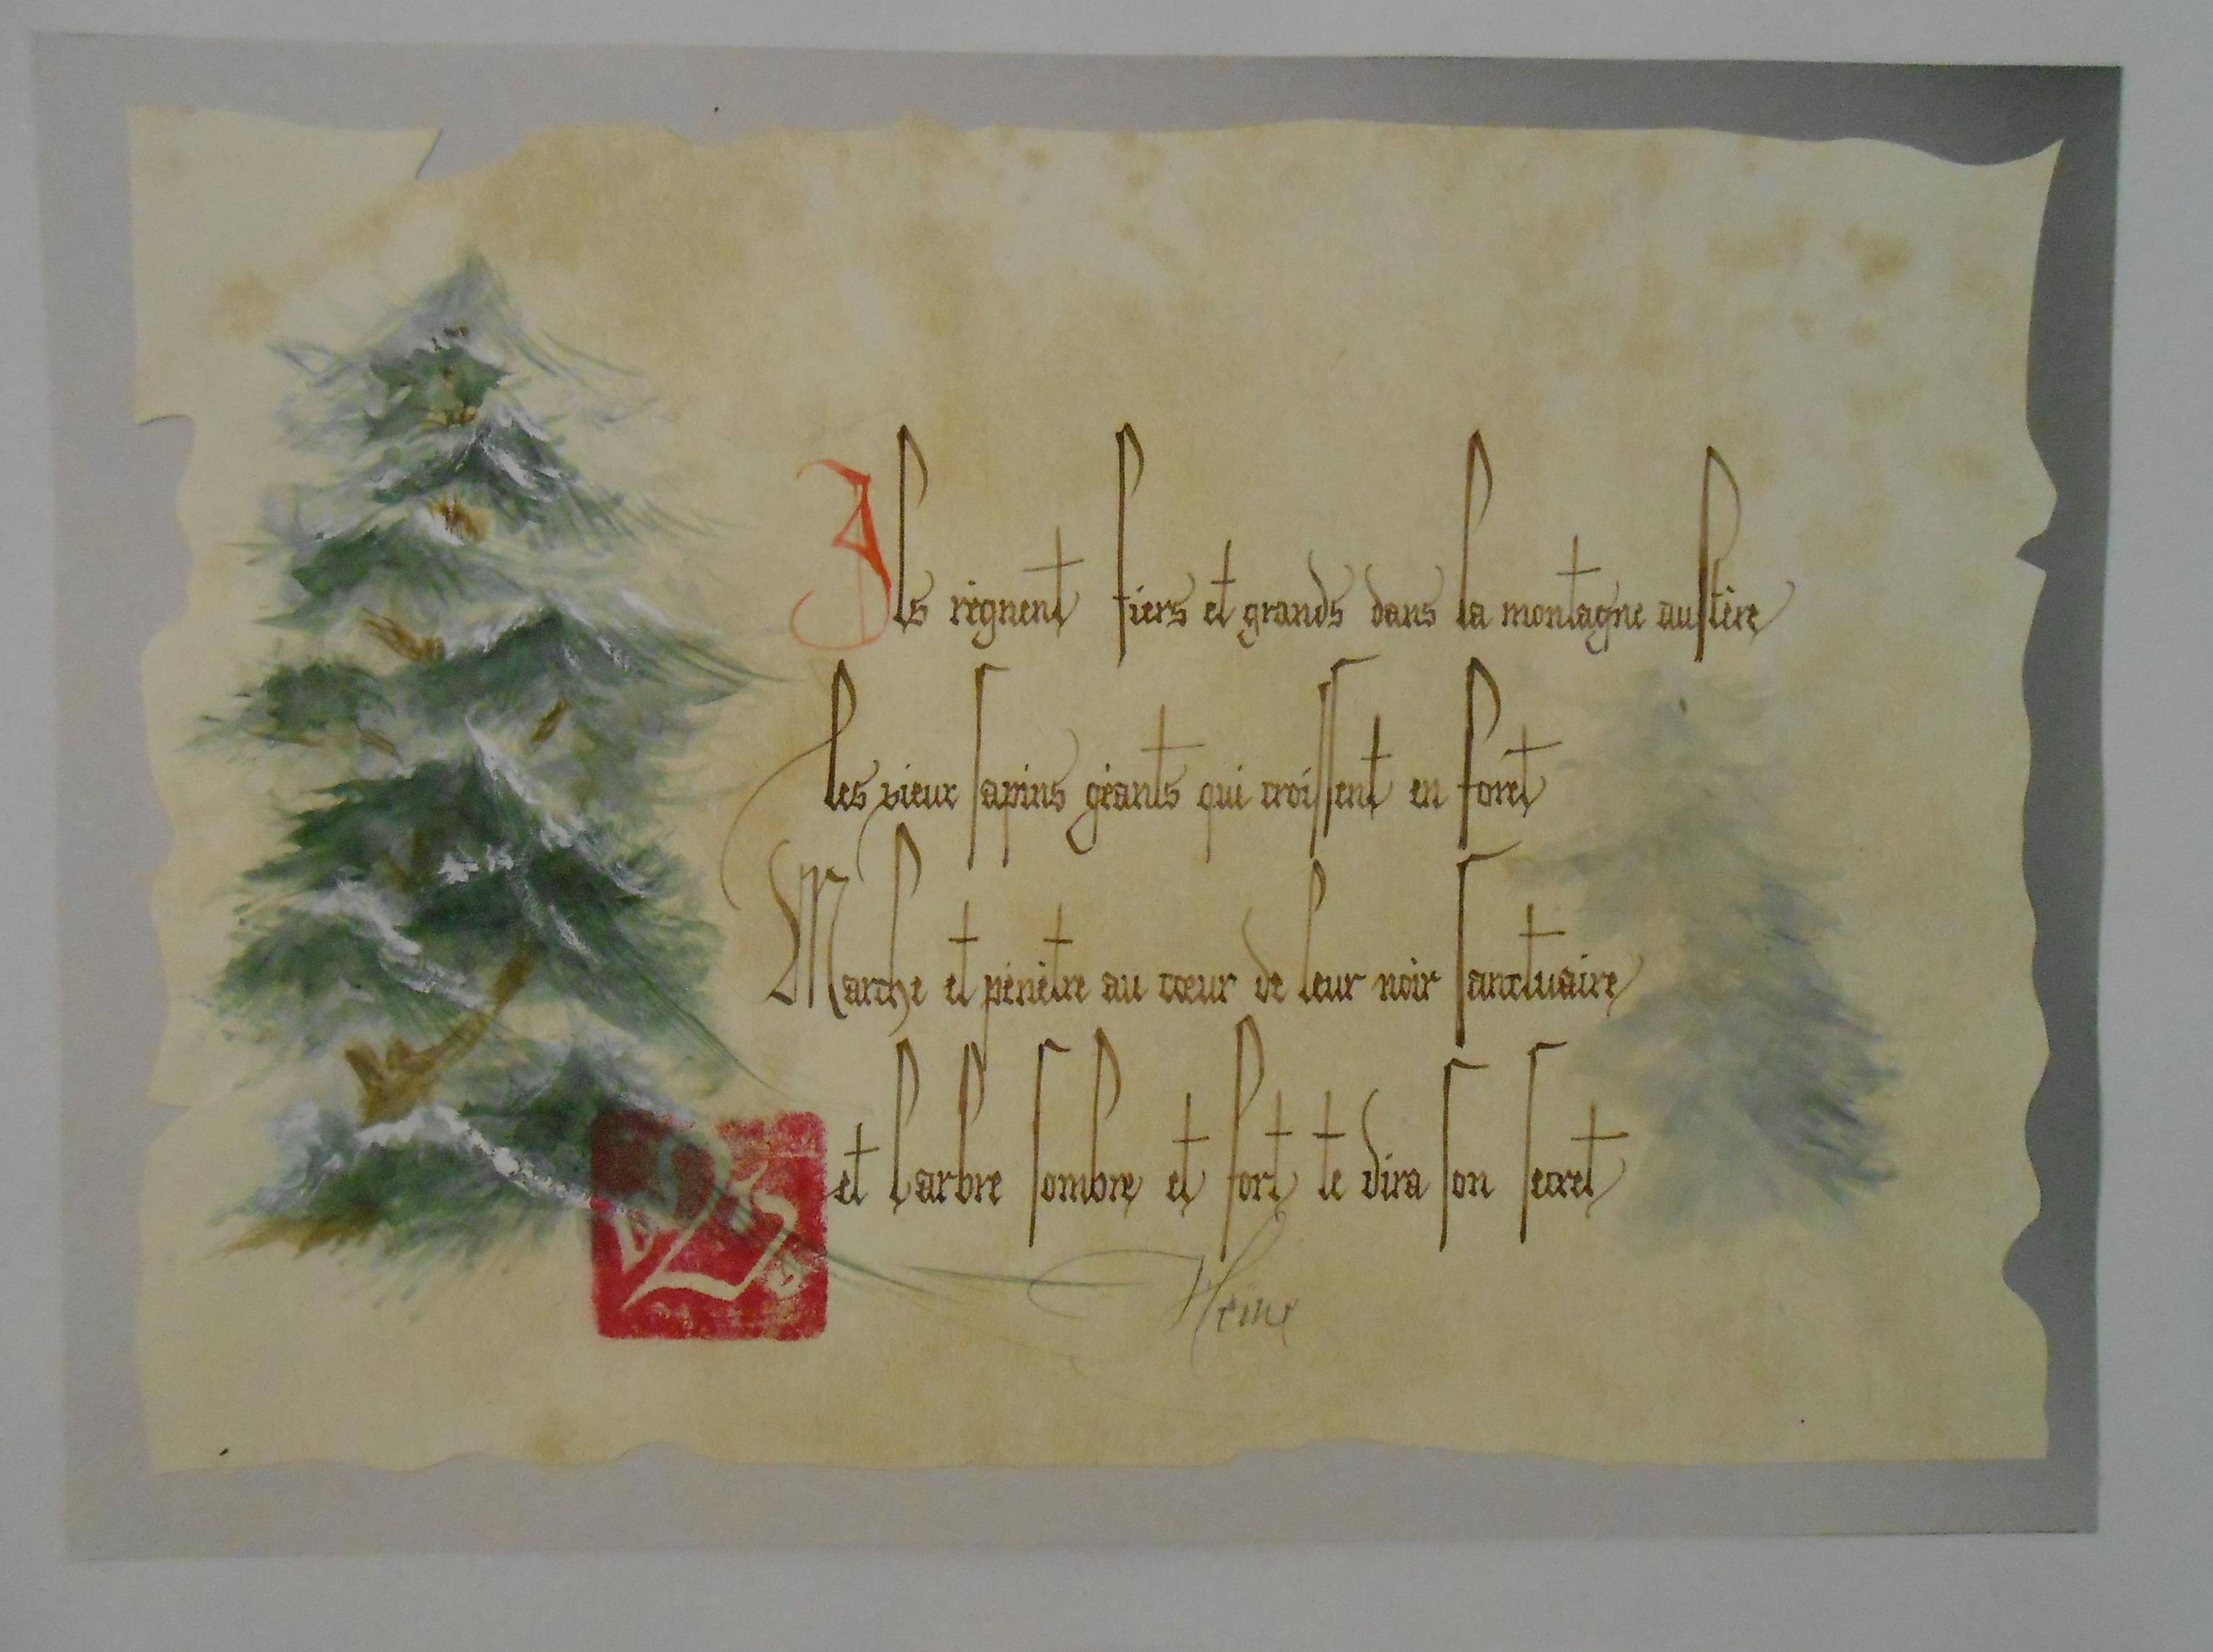 Ils règnent fiers et grands dans la montagne austère
les vieux sapins géants qui croissent en foret
Marche et pénètre au cœur de leur noir sanctuaire
et l'arbre sombre et fort te dira son secret
Heine